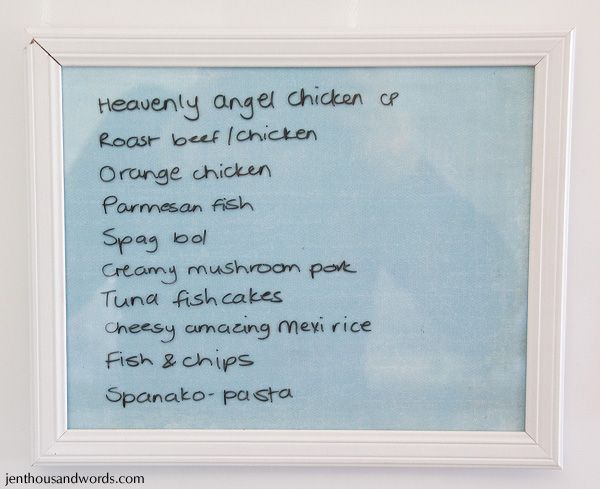 Heavenly angel chicken CP
Roast beef/chicken
Orange chicken
Parmesan fish
Spag bol
Creamy mushroom pork
Tuna fishcakes
Cheesy amazing Mexi rice
Fish & chips
Spanako-pasta
jenthousandwords.com